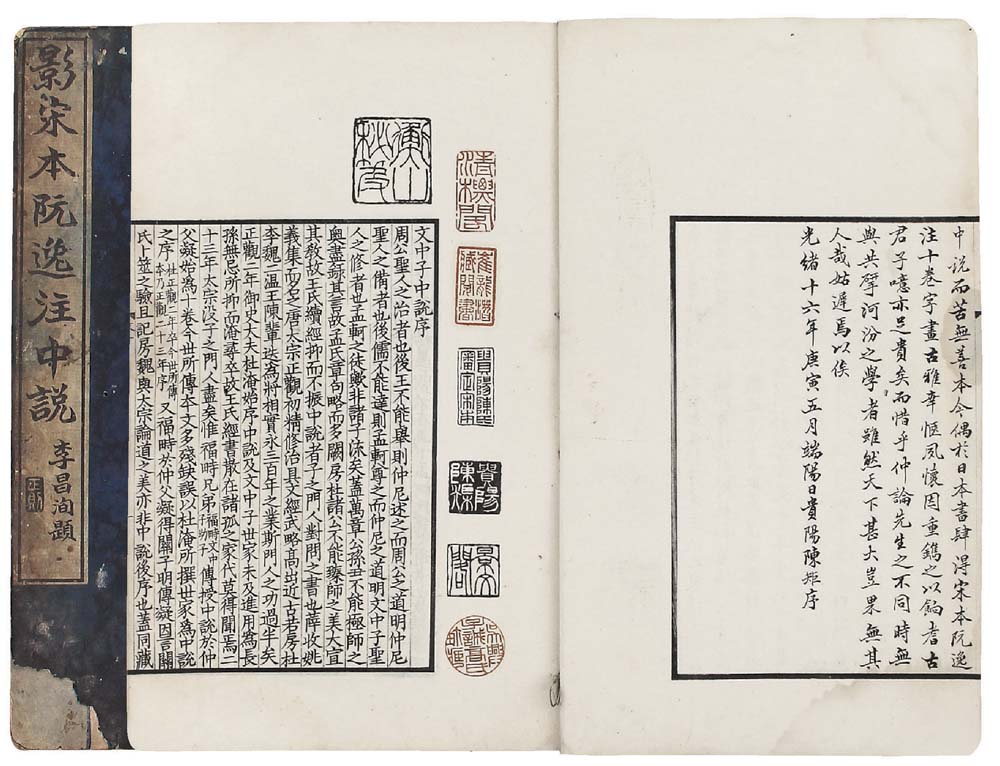 影宋本阮逸注中說
李昌洵題
中說而苦無善本今偶於日本書肆得宋本阮逸
注十卷字畫古雅幸愜夙懷因重鐫之以餉耆古
君子噫亦足貴矣而惜乎仲論先生之不同時無
與共揅河汾之學者雖然天下甚大豈果無其
人哉姑遲焉以俟
光緒十六年庚寅五月端陽日貴陽陳矩序
貴陽陳氏審定宋本
文中子中說序
周公聖人之治者也後王不能舉則仲尼述之而周公之道明仲尼
聖人之備者也後儒不能達則孟軻尊之而仲尼之道明文中子聖
人之脩者也孟軻之徒歟非諸子流矣蓋萬章公孫丑不能極師之
奧盡錄其言故孟氏章句略而多闕房杜諸公不能臻師之美大宣
其教故王氏續經抑而不振中說者子之門人對問之書也薛收姚
義集而名之唐太宗正觀初精修治具文經武略高出近古若房杜
李魏二溫王陳輩迭為將相實永三百年之業斯門人之功過半矣
正觀二年御史大夫杜淹始序中說及文中子世家未及進用為長
孫無忌所抑而淹尋卒故王氏經書散在諸孤之家代莫得聞焉二
十三年太宗沒子之門人盡矣惟福畤兄弟福畤文中子幼子傳授中說於仲
父凝始為十卷今世所傳本文多殘缺誤以杜淹所撰世家為中說
之序杜正觀二年卒今世所傳本乃正觀二十三年序又福畤於仲父凝得關子明傳凝因言關
氏卜筮之驗且記房魏與太宗論道之美亦非中說後序也蓋同藏